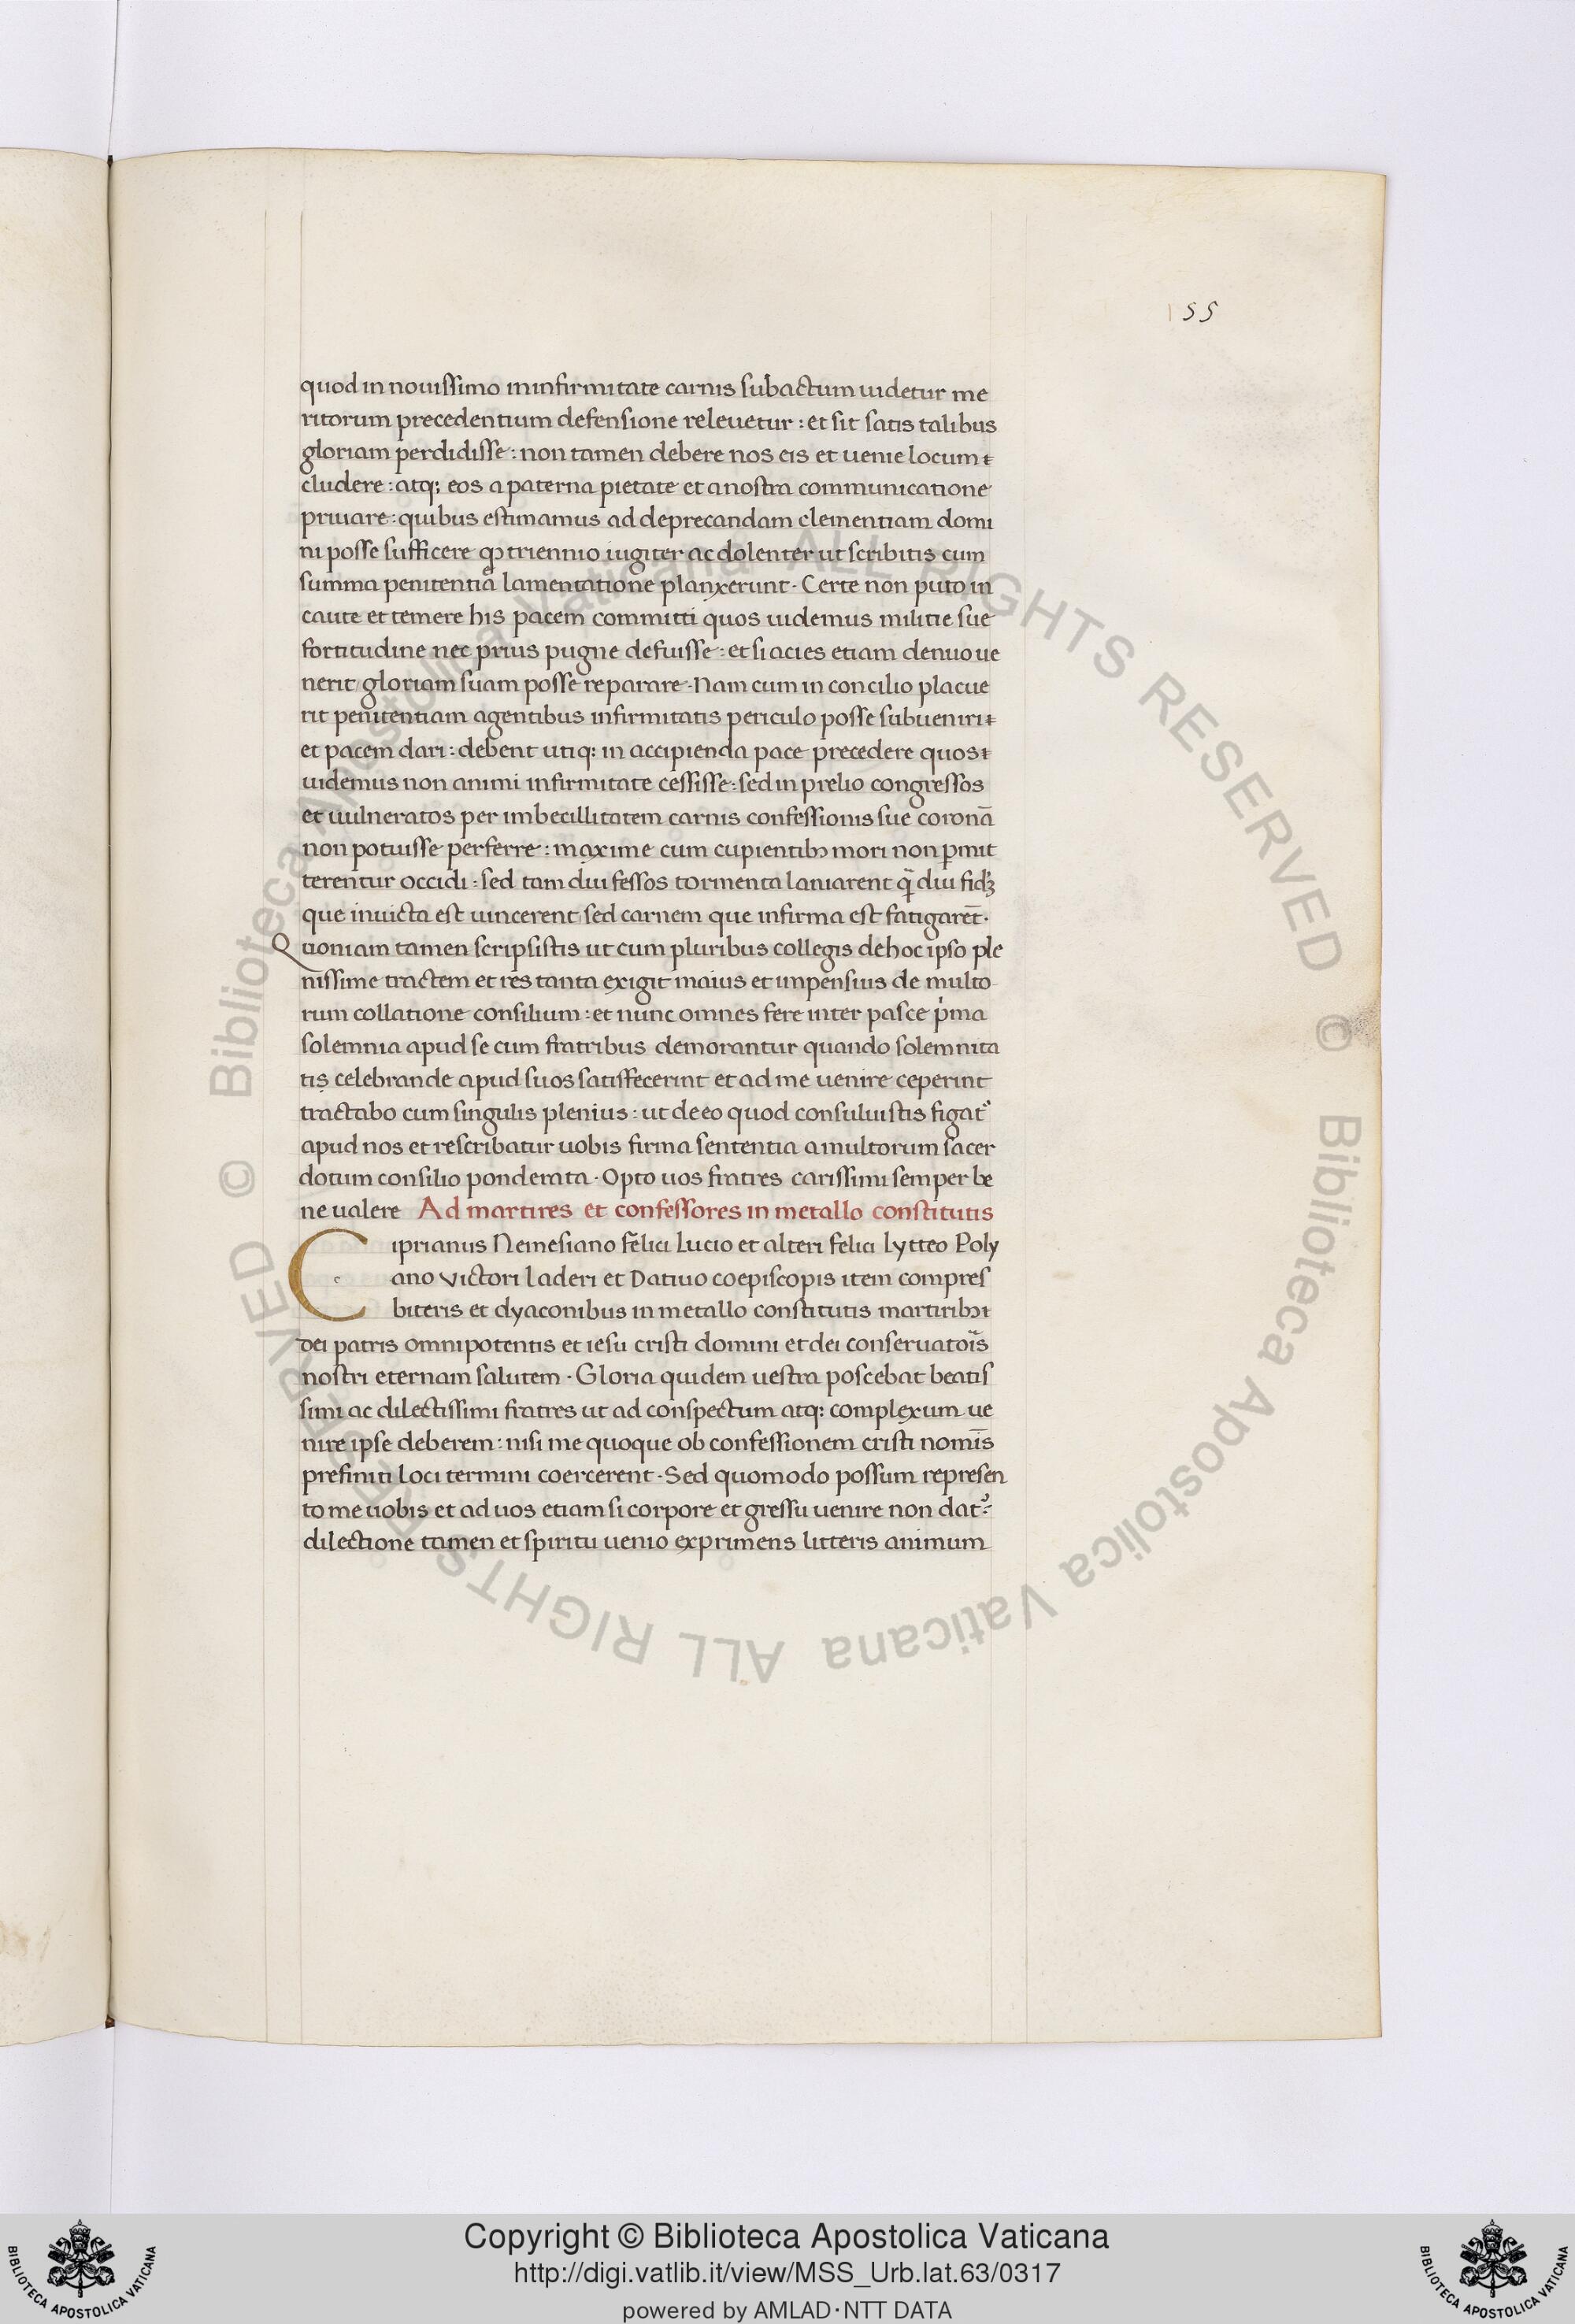 155
quod in nouissimo in infirmitate carnis subactum uidetur me
ritorum precedentium defensione releuetur : et sit satis talibus
gloriam perdidisse : non tamen debere nos eis et uenie locum
cludere : atq; eos a paterna pietate et a nostra communicatione
priuare : quibus estimamus ad deprecandam clementiam domi
ni posse sufficere qɔ triennio iugiter ac dolenter ut scribitis cum
summa penitentiā lamentatione planxerunt · Certe non puto in
caute et temere his pacem committi quos uidemus militie sue
fortitudine nec prius pugne defuisse : et si acies etiam denuo ue
nerit gloriam suam posse reparare · Nam cum in concilio placue
rit penitentiam agentibus infirmitatis periculo posse subueniri
et pacem dari : debent utiq; in accipienda pace precedere quos
uidemus non animi infirmitate cessisse : sed in prelio congressos
et uulneratos per imbecillitatem carnis confessionis sue coronā
non potuisse perferre : maxime cum cupientibꝫ mori non ꝑmit
terentur occidi : sed tam diu fessos tormenta laniarent q̄ diu fidꝫ
que inuicta est uincerent sed carnem que infirma est fatigarēt ·
Quoniam tamen scripsistis ut cum pluribus collegis de hoc ipso ple
nissime tractem et res tanta exigit maius et impensius de multo
rum collatione consilium : et nunc omnes fere inter pasce pͥma
solemnia apud se cum fratribus demorantur quando solemnita
tis celebrande apud suos satisfecerint et ad me uenire ceperint
tractabo cum singulis plenius : ut de eo quod consuluistis figatᷣ
apud nos et rescribatur uobis firma sententia a multorum sacer
dotum consilio ponderata · Opto uos fratres carissimi semper be
ne ualere Ad martires et confessores in metallo constitutis
Ciprianus Nemesiano felici Lucio et alteri felici Lytteo Poly
ano victori laderi et Datiuo coepiscopis item compres
biteris et dyaconibus in metallo constitutis martiribꝫ
Dei patris omnipotentis et iesu cristi domini et dei conseruatoīs
nostri eternam salutem · Gloria quidem uestra poscebat beatis
simi ac dilectissimi fratres ut ad conspectum atq; complexum ue
nire ipse deberem : nisi me quoque ob confessionem cristi nomīs
prefiniti loci termini coercerent · Sed quomodo possum represen
to me uobis et ad uos etiam si corpore et gressu uenire non datᷣ :
dilectione tamen et spiritu uenio exprimens litteris animum
© Biblioteca Apostolica Vaticana ALL RIGHTS RESERVED © Biblioteca Apostolica Vaticana ALL RIGHTS RESERVED
Copyright © Biblioteca Apostolica Vaticana
http://digi.vatlib.it/view/MSS_Urb.lat.63/0317
powered by AMLAD·NTT DATA
BIBLIOTECA APOSTOLICA VATICANA
BIBLIOTECA APOSTOLICA VATICANA